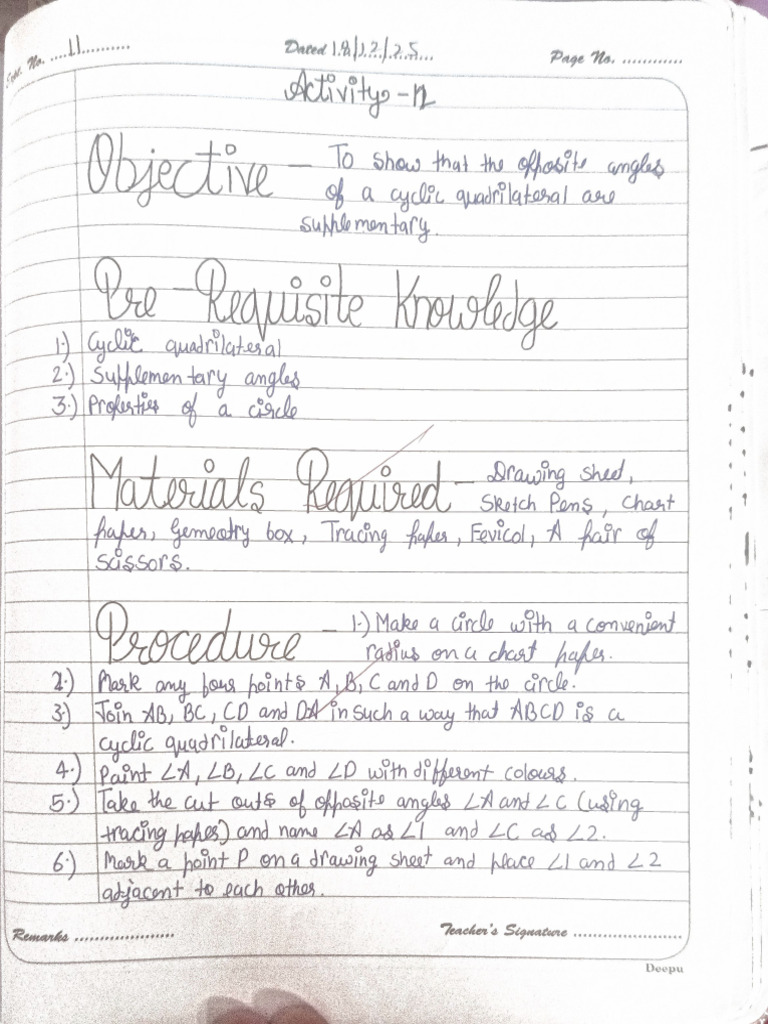 Expt. No. ....11..........
Dated 18/12/25......
Page No. ............
Activity - 12
Objective - To show that the opposite angles
of a cyclic quadrilateral are
supplementary.
Pre-Requisite Knowledge
1.) Cyclic quadrilateral
2.) Supplementary angles
3.) Properties of a circle
Materials Required - Drawing sheet,
Sketch Pens, Chart
paper, Gemeotry box, Tracing paper, Fevicol, A pair of
scissors.
Procedure - 1.) Make a circle with a convenient
radius on a chart paper.
2.) Mark any four points A, B, C and D on the circle.
3.) Join AB, BC, CD and DA in such a way that ABCD is a
cyclic quadrilateral.
4.) Paint ∠A, ∠B, ∠C and ∠D with different colours.
5.) Take the cut outs of opposite angles ∠A and ∠C (using
tracing paper) and name ∠A as ∠1 and ∠C as ∠2.
6.) Mark a point P on a drawing sheet and place ∠1 and ∠2
adjacent to each other.
Remarks ....................
Teacher's Signature ......................
Deepu